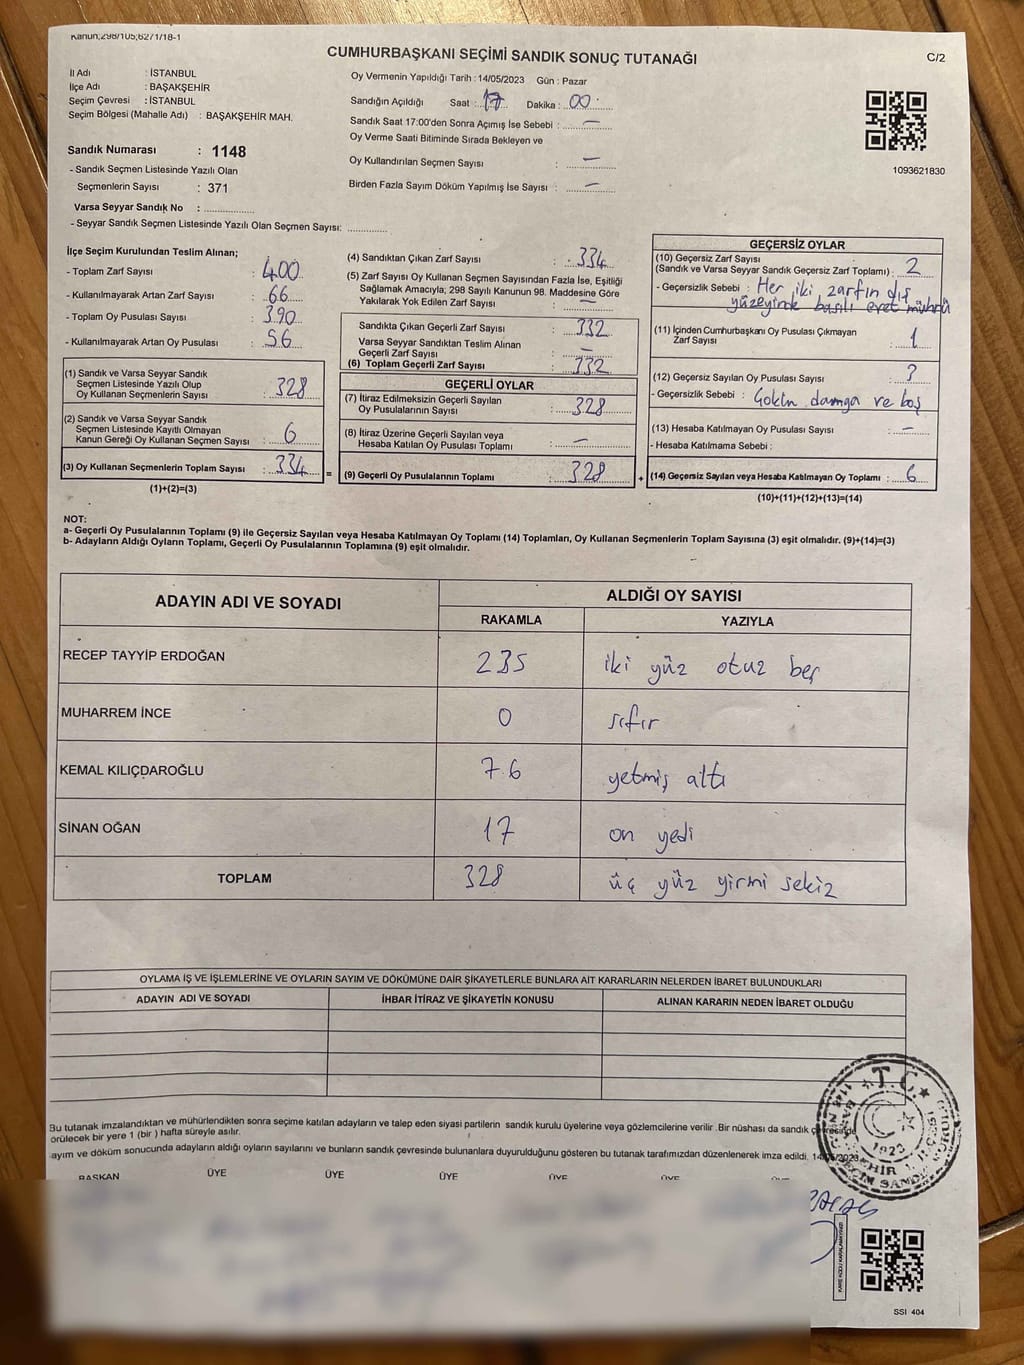 Kanun;298/105,6271/18-1
CUMHURBAŞKANI SEÇİMİ SANDIK SONUÇ TUTANAĞI
C/2
İl Adı : İSTANBUL
İlçe Adı : BAŞAKŞEHİR
Seçim Çevresi : İSTANBUL
Seçim Bölgesi (Mahalle Adı) : BAŞAKŞEHİR MAH.
Sandık Numarası : 1148
- Sandık Seçmen Listesinde Yazılı Olan
Seçmenlerin Sayısı : 371
Varsa Seyyar Sandık No : ...............
- Seyyar Sandık Seçmen Listesinde Yazılı Olan Seçmen Sayısı: ............
Oy Vermenin Yapıldığı Tarih : 14/05/2023 Gün : Pazar
Sandığın Açıldığı Saat : 17 Dakika : 00
Sandık Saat 17:00'den Sonra Açımış İse Sebebi : —
Oy Verme Saati Bitiminde Sırada Bekleyen ve
Oy Kullandırılan Seçmen Sayısı : —
Birden Fazla Sayım Döküm Yapılmış İse Sayısı : —
1093621830
İlçe Seçim Kurulundan Teslim Alınan;
- Toplam Zarf Sayısı : 400
- Kullanılmayarak Artan Zarf Sayısı : 66
- Toplam Oy Pusulası Sayısı : 390
- Kullanılmayarak Artan Oy Pusulası : 56
(1) Sandık ve Varsa Seyyar Sandık
Seçmen Listesinde Yazılı Olup
Oy Kullanan Seçmenlerin Sayısı : 328
(2) Sandık ve Varsa Seyyar Sandık
Seçmen Listesinde Kayıtlı Olmayan
Kanun Gereği Oy Kullanan Seçmen Sayısı : 6
(3) Oy Kullanan Seçmenlerin Toplam Sayısı : 334
(1)+(2)=(3)
=
(4) Sandıktan Çıkan Zarf Sayısı : 334
(5) Zarf Sayısı Oy Kullanan Seçmen Sayısından Fazla İse, Eşitliği
Sağlamak Amacıyla; 298 Sayılı Kanunun 98. Maddesine Göre
Yakılarak Yok Edilen Zarf Sayısı : —
Sandıkta Çıkan Geçerli Zarf Sayısı : 332
Varsa Seyyar Sandıktan Teslim Alınan
Geçerli Zarf Sayısı : —
(6) Toplam Geçerli Zarf Sayısı : 332
GEÇERLİ OYLAR
(7) İtiraz Edilmeksizin Geçerli Sayılan
Oy Pusulalarının Sayısı : 328
(8) İtiraz Üzerine Geçerli Sayılan veya
Hesaba Katılan Oy Pusulası Toplamı : —
(9) Geçerli Oy Pusulalarının Toplamı : 328
+
GEÇERSİZ OYLAR
(10) Geçersiz Zarf Sayısı
(Sandık ve Varsa Seyyar Sandık Geçersiz Zarf Toplamı) : 2
- Geçersizlik Sebebi : Her iki zarfın dış
yüzeyinde basılı evet mührü
(11) İçinden Cumhurbaşkanı Oy Pusulası Çıkmayan
Zarf Sayısı : 1
(12) Geçersiz Sayılan Oy Pusulası Sayısı : 3
- Geçersizlik Sebebi : damga ve boş
(13) Hesaba Katılmayan Oy Pusulası Sayısı : —
- Hesaba Katılmama Sebebi :
(14) Geçersiz Sayılan veya Hesaba Katılmayan Oy Toplamı : 6
(10)+(11)+(12)+(13)=(14)
NOT:
a- Geçerli Oy Pusulalarının Toplamı (9) ile Geçersiz Sayılan veya Hesaba Katılmayan Oy Toplamı (14) Toplamları, Oy Kullanan Seçmenlerin Toplam Sayısına (3) eşit olmalıdır. (9)+(14)=(3)
b- Adayların Aldığı Oyların Toplamı, Geçerli Oy Pusulalarının Toplamına (9) eşit olmalıdır.
ADAYIN ADI VE SOYADI
ALDIĞI OY SAYISI
RAKAMLA YAZIYLA
RECEP TAYYİP ERDOĞAN 235 iki yüz otuz beş
MUHARREM İNCE 0 sıfır
KEMAL KILIÇDAROĞLU 76 yetmiş altı
SİNAN OĞAN 17 on yedi
TOPLAM 328 üç yüz yirmi sekiz
OYLAMA İŞ VE İŞLEMLERİNE VE OYLARIN SAYIM VE DÖKÜMÜNE DAİR ŞİKAYETLERLE BUNLARA AİT KARARLARIN NELERDEN İBARET BULUNDUKLARI
ADAYIN ADI VE SOYADI İHBAR İTİRAZ VE ŞİKAYETİN KONUSU ALINAN KARARIN NEDEN İBARET OLDUĞU
Bu tutanak imzalandıktan ve mühürlendikten sonra seçime katılan adayların ve talep eden siyasi partilerin sandık kurulu üyelerine veya gözlemcilerine verilir. Bir nüshası da sandık çevresinde
örülecek bir yere 1 (bir) hafta süreyle asılır.
ayım ve döküm sonucunda adayların aldığı oyların sayılarını ve bunların sandık çevresinde bulunanlara duyurulduğunu gösteren bu tutanak tarafımızdan düzenlenerek imza edildi. 14/05/2023
BAŞKAN ÜYE ÜYE ÜYE ÜYE ÜYE
T.C.
1923
SSI 404